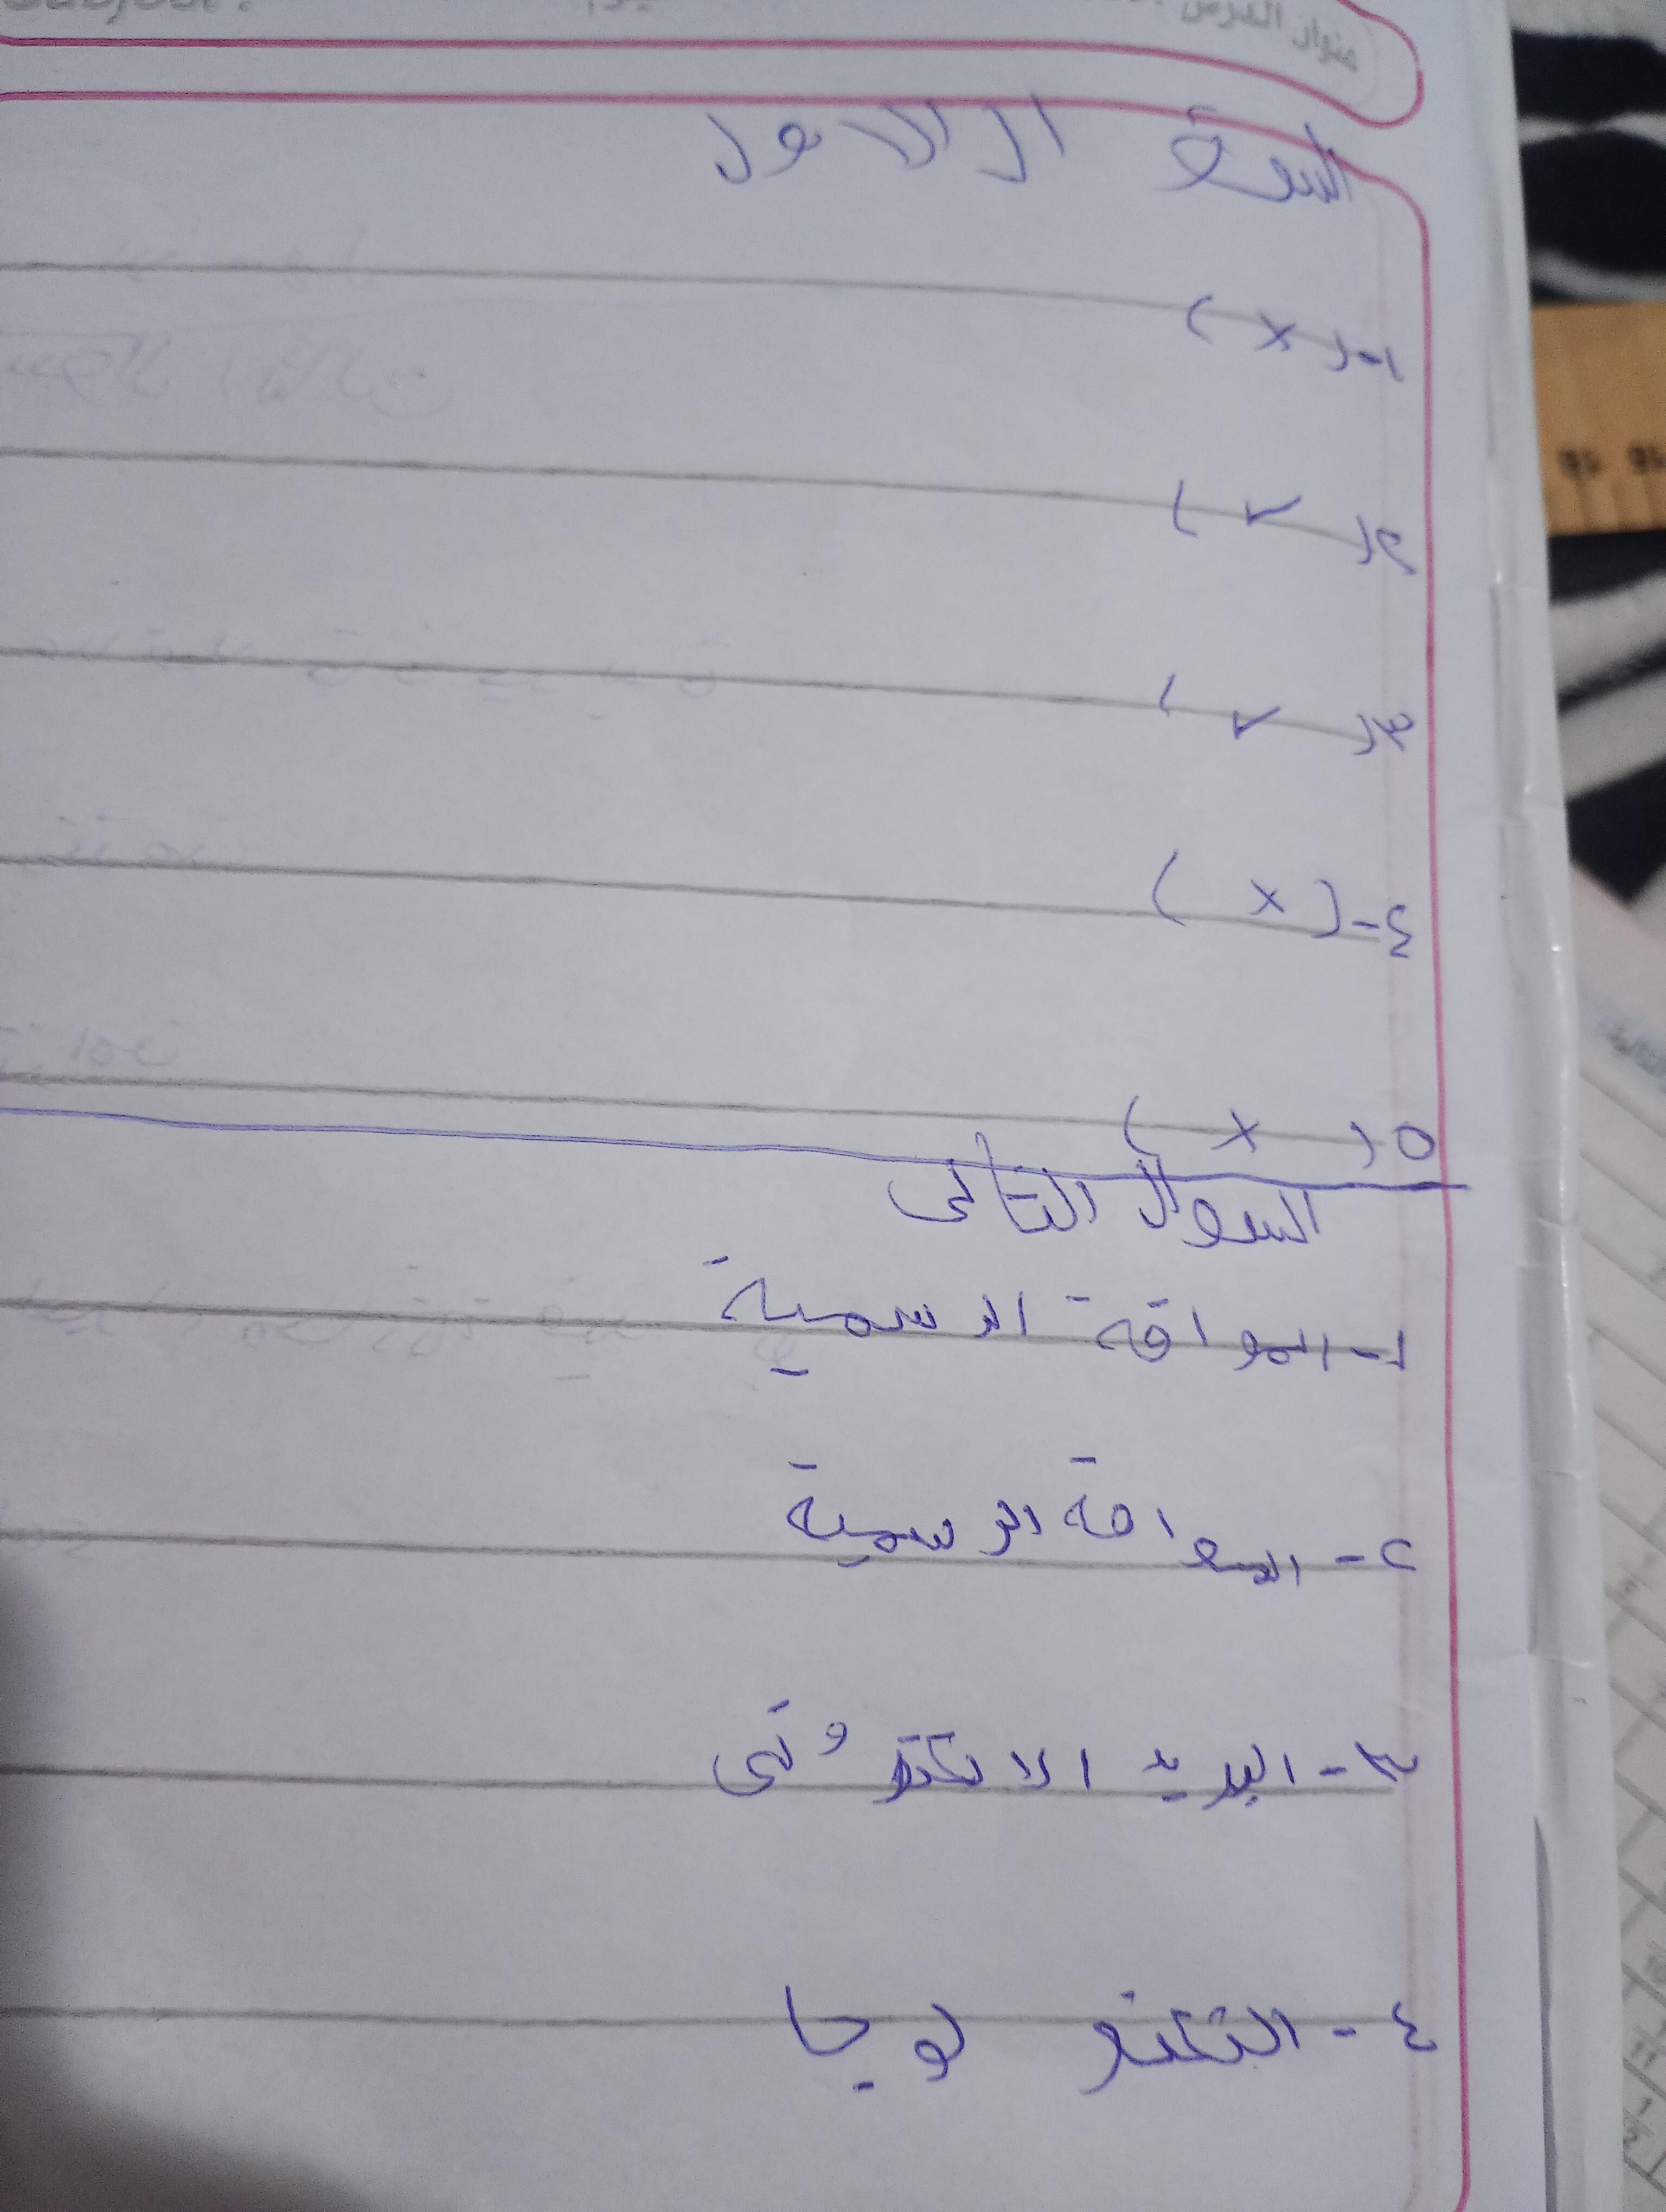 عنوان الدرس
ال الاول
١-( x )
٢( ✓ )
٣( ✓ )
٤-( x )
٥( x )
السوال التالى
١- المواقة الرسمية
٢- المواقة الرسمية
٣- البريد الالكترونى
٤- التكنو لوجيا